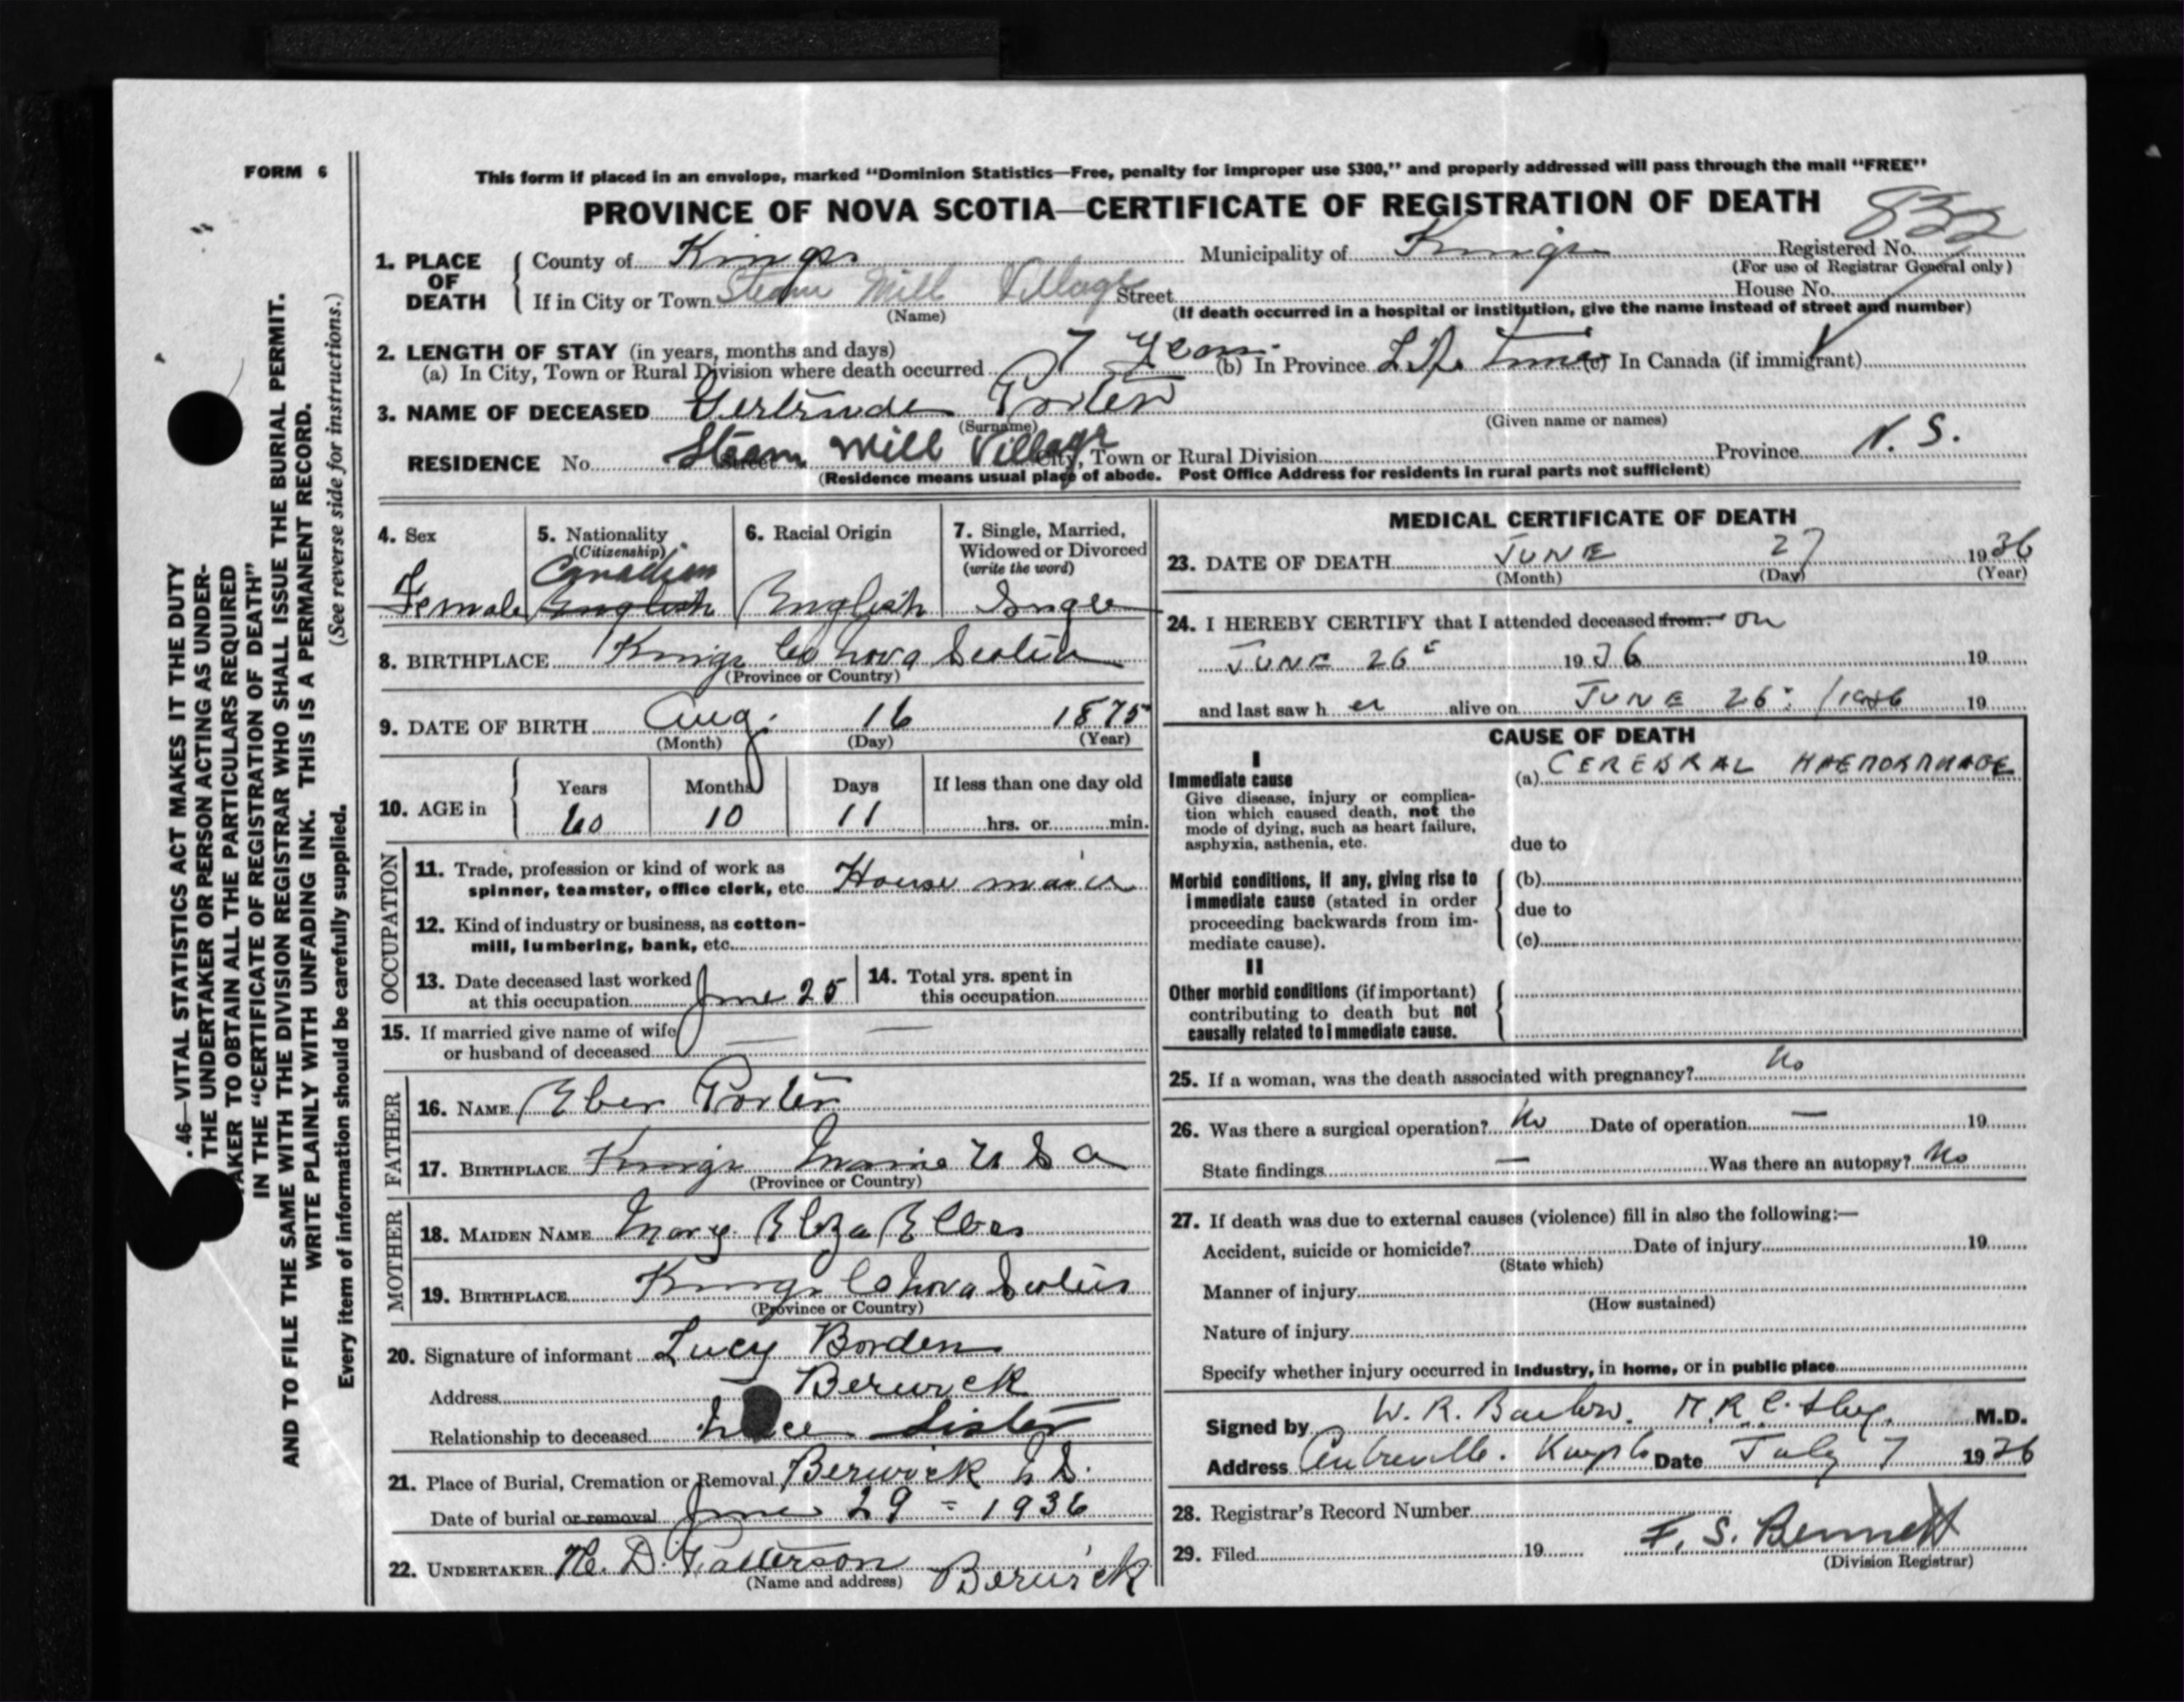 FORM 6
This form if placed in an envelope, marked "Dominion Statistics—Free, penalty for improper use $300," and properly addressed will pass through the mail "FREE"
PROVINCE OF NOVA SCOTIA—CERTIFICATE OF REGISTRATION OF DEATH
832
1. PLACE OF DEATH
County of Kings Municipality of Kings Registered No.
(For use of Registrar General only)
If in City or Town Steam Mill Village Street House No.
(Name) (If death occurred in a hospital or institution, give the name instead of street and number)
2. LENGTH OF STAY (in years, months and days)
(a) In City, Town or Rural Division where death occurred 7 years (b) In Province Life time (c) In Canada (if immigrant)
3. NAME OF DECEASED Gertrude Porter
(Surname) (Given name or names)
RESIDENCE No. Street Steam Mill Village City, Town or Rural Division Province N. S.
(Residence means usual place of abode. Post Office Address for residents in rural parts not sufficient)
4. Sex
Female
5. Nationality
(Citizenship)
Canadian
English
6. Racial Origin
English
7. Single, Married, Widowed or Divorced
(write the word)
Single
8. BIRTHPLACE Kings Co Nova Scotia
(Province or Country)
9. DATE OF BIRTH Aug. 16 1875
(Month) (Day) (Year)
10. AGE in
Years Months Days If less than one day old
60 10 11 hrs. or min.
OCCUPATION
11. Trade, profession or kind of work as
spinner, teamster, office clerk, etc. House maid
12. Kind of industry or business, as cotton-
mill, lumbering, bank, etc.
13. Date deceased last worked
at this occupation June 25
14. Total yrs. spent in
this occupation
15. If married give name of wife
or husband of deceased —
FATHER
16. NAME Eber Porter
17. BIRTHPLACE Kings Maine U S A
(Province or Country)
MOTHER
18. MAIDEN NAME Mary Eliza
19. BIRTHPLACE Kings Co Nova Scotia
(Province or Country)
20. Signature of informant Lucy Borden
Address Berwick
Relationship to deceased Sister
21. Place of Burial, Cremation or Removal Berwick N S.
Date of burial or removal June 29 = 1936
22. UNDERTAKER H. D. Patterson Berwick
(Name and address)
MEDICAL CERTIFICATE OF DEATH
23. DATE OF DEATH JUNE 27 1936
(Month) (Day) (Year)
24. I HEREBY CERTIFY that I attended deceased from: on
JUNE 26 1936 19
and last saw her alive on JUNE 26: 1936 19
CAUSE OF DEATH
I
Immediate cause
Give disease, injury or complica-
tion which caused death, not the
mode of dying, such as heart failure,
asphyxia, asthenia, etc.
(a) CEREBRAL HAEMORRHAGE
due to
Morbid conditions, if any, giving rise to
immediate cause (stated in order
proceeding backwards from im-
mediate cause).
(b)
due to
(c)
II
Other morbid conditions (if important)
contributing to death but not
causally related to immediate cause.
25. If a woman, was the death associated with pregnancy? No
26. Was there a surgical operation? No Date of operation — 19
State findings — Was there an autopsy? No
27. If death was due to external causes (violence) fill in also the following:—
Accident, suicide or homicide? Date of injury 19
(State which)
Manner of injury
(How sustained)
Nature of injury
Specify whether injury occurred in industry, in home, or in public place
Signed by W. R. M.D.
Address Centreville. Date July 7 1936
28. Registrar's Record Number
29. Filed 19 F. S. Bennett
(Division Registrar)
. 46—VITAL STATISTICS ACT MAKES IT THE DUTY
THE UNDERTAKER OR PERSON ACTING AS UNDER-
TAKER TO OBTAIN ALL THE PARTICULARS REQUIRED
IN THE "CERTIFICATE OF REGISTRATION OF DEATH"
AND TO FILE THE SAME WITH THE DIVISION REGISTRAR WHO SHALL ISSUE THE BURIAL PERMIT.
WRITE PLAINLY WITH UNFADING INK. THIS IS A PERMANENT RECORD.
Every item of information should be carefully supplied. (See reverse side for instructions.)